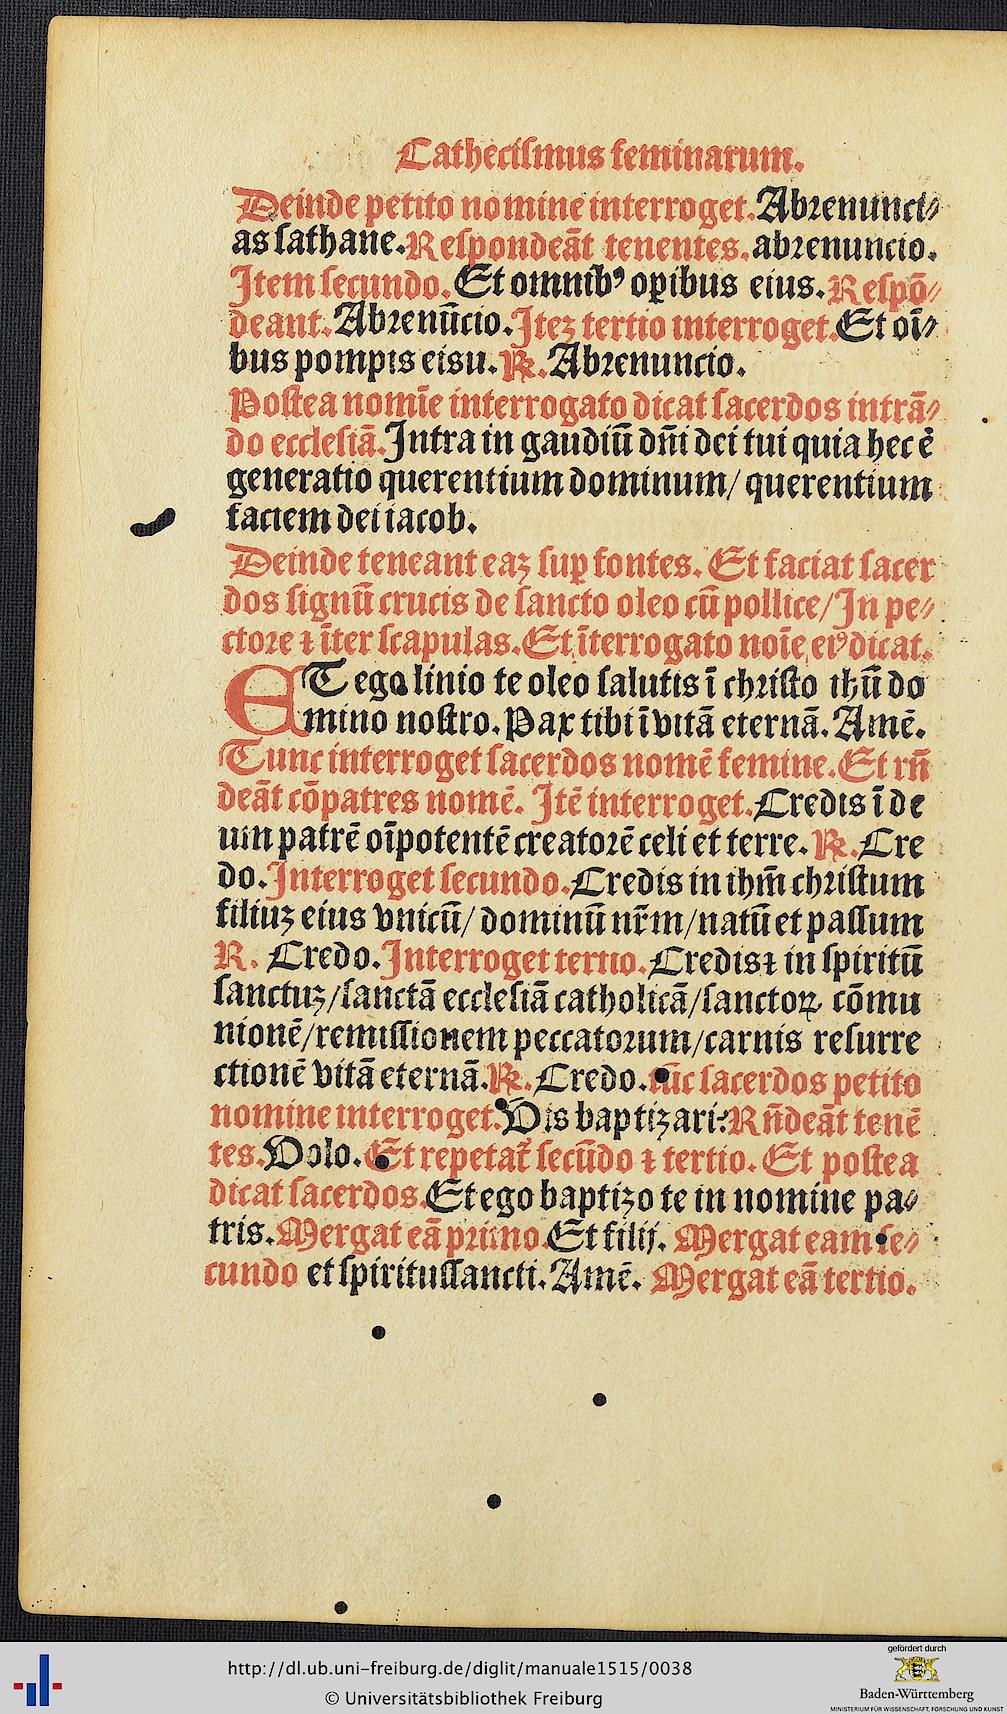 Cathecismus feminarum.
Deinde petito nomine interroget. Abrenunci⸗
as sathane. Respondeāt tenentes. abrenuncio.
Item secundo. Et omnib⁹ oꝑibus eius. Respō⸗
deant. Abrenūcio. Iteꝫ tertio interroget. Et oī⸗
bus pompis eisu. ℟. Abrenuncio.
Postea nomīe interrogato dicat sacerdos intrā⸗
do ecclesiā. Intra in gaudiū dn̄i dei tui quia hec ē
generatio querentium dominum/ querentium
faciem dei iacob.
Deinde teneant eaꝫ suꝑ fontes. Et faciat sacer
dos signū crucis de sancto oleo cū pollice/ In pe⸗
ctore ⁊ īter scapulas. Et īterrogato noīe ei⁹ dicat.
ET ego linio te oleo salutis ī christo ihū do
mino nostro. Pax tibi ī vitā eternā. Amē.
Tunc interroget sacerdos nomē femine. Et rn̄
deāt cōpatres nomē. Itē interroget. Credis ī de
um patrē oīpotentē creatorē celi et terre. ℟. Cre
do. Interroget secundo. Credis in ihm̄ christum
filiuꝫ eius vnicū/ dominū nr̄m/ natū et passum
R. Credo. Interroget tertio. Credis ⁊ in spiritū
sanctuꝫ/ sanctā ecclesiā catholicā/ sanctoꝝ cōmu
nionē/ remissionem peccatorum/ carnis resurre
ctionē vitā eternā. ℟. Credo. tūc sacerdos petito
nomine interroget. Vis baptizari: Rn̄deāt tenē
tes. Volo. Et repetat᷑ secūdo ⁊ tertio. Et postea
dicat sacerdos. Et ego baptizo te in nomine pa⸗
tris. Mergat eā primo. Et filij. Mergat eam se⸗
cundo et spiritussancti. Amē. Mergat eā tertio.
http://dl.ub.uni-freiburg.de/diglit/manuale1515/0038
© Universitätsbibliothek Freiburg
gefördert durch
Baden-Württemberg
MINISTERIUM FÜR WISSENSCHAFT, FORSCHUNG UND KUNST